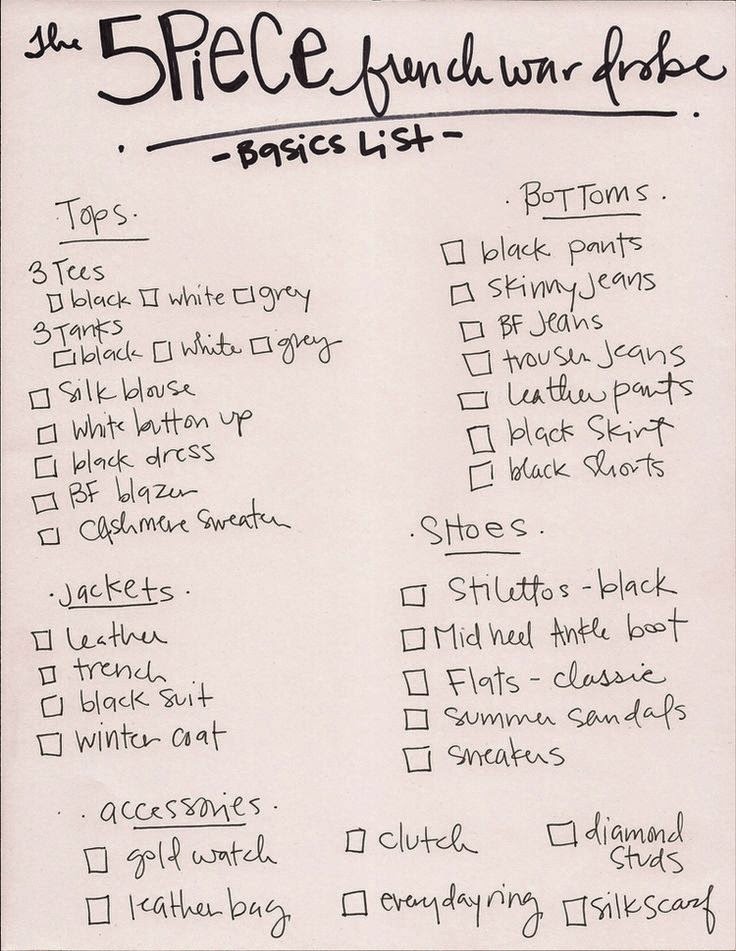 The 5 Piece french wardrobe
- Basics List -
Tops.
3 Tees
black white grey
3 Tanks
black white grey
Silk blouse
white button up
black dress
BF blazer
Cashmere sweater
. Jackets .
leather
trench
black suit
winter coat
. Bottoms .
black pants
skinny jeans
BF Jeans
trouser jeans
leather pants
black skirt
black shorts
. Shoes .
Stilettos - black
Mid heel Ankle boot
Flats - classic
summer sandals
sneakers
. . accessories .
gold watch
leather bag
clutch
everyday ring
diamond
studs
silk scarf